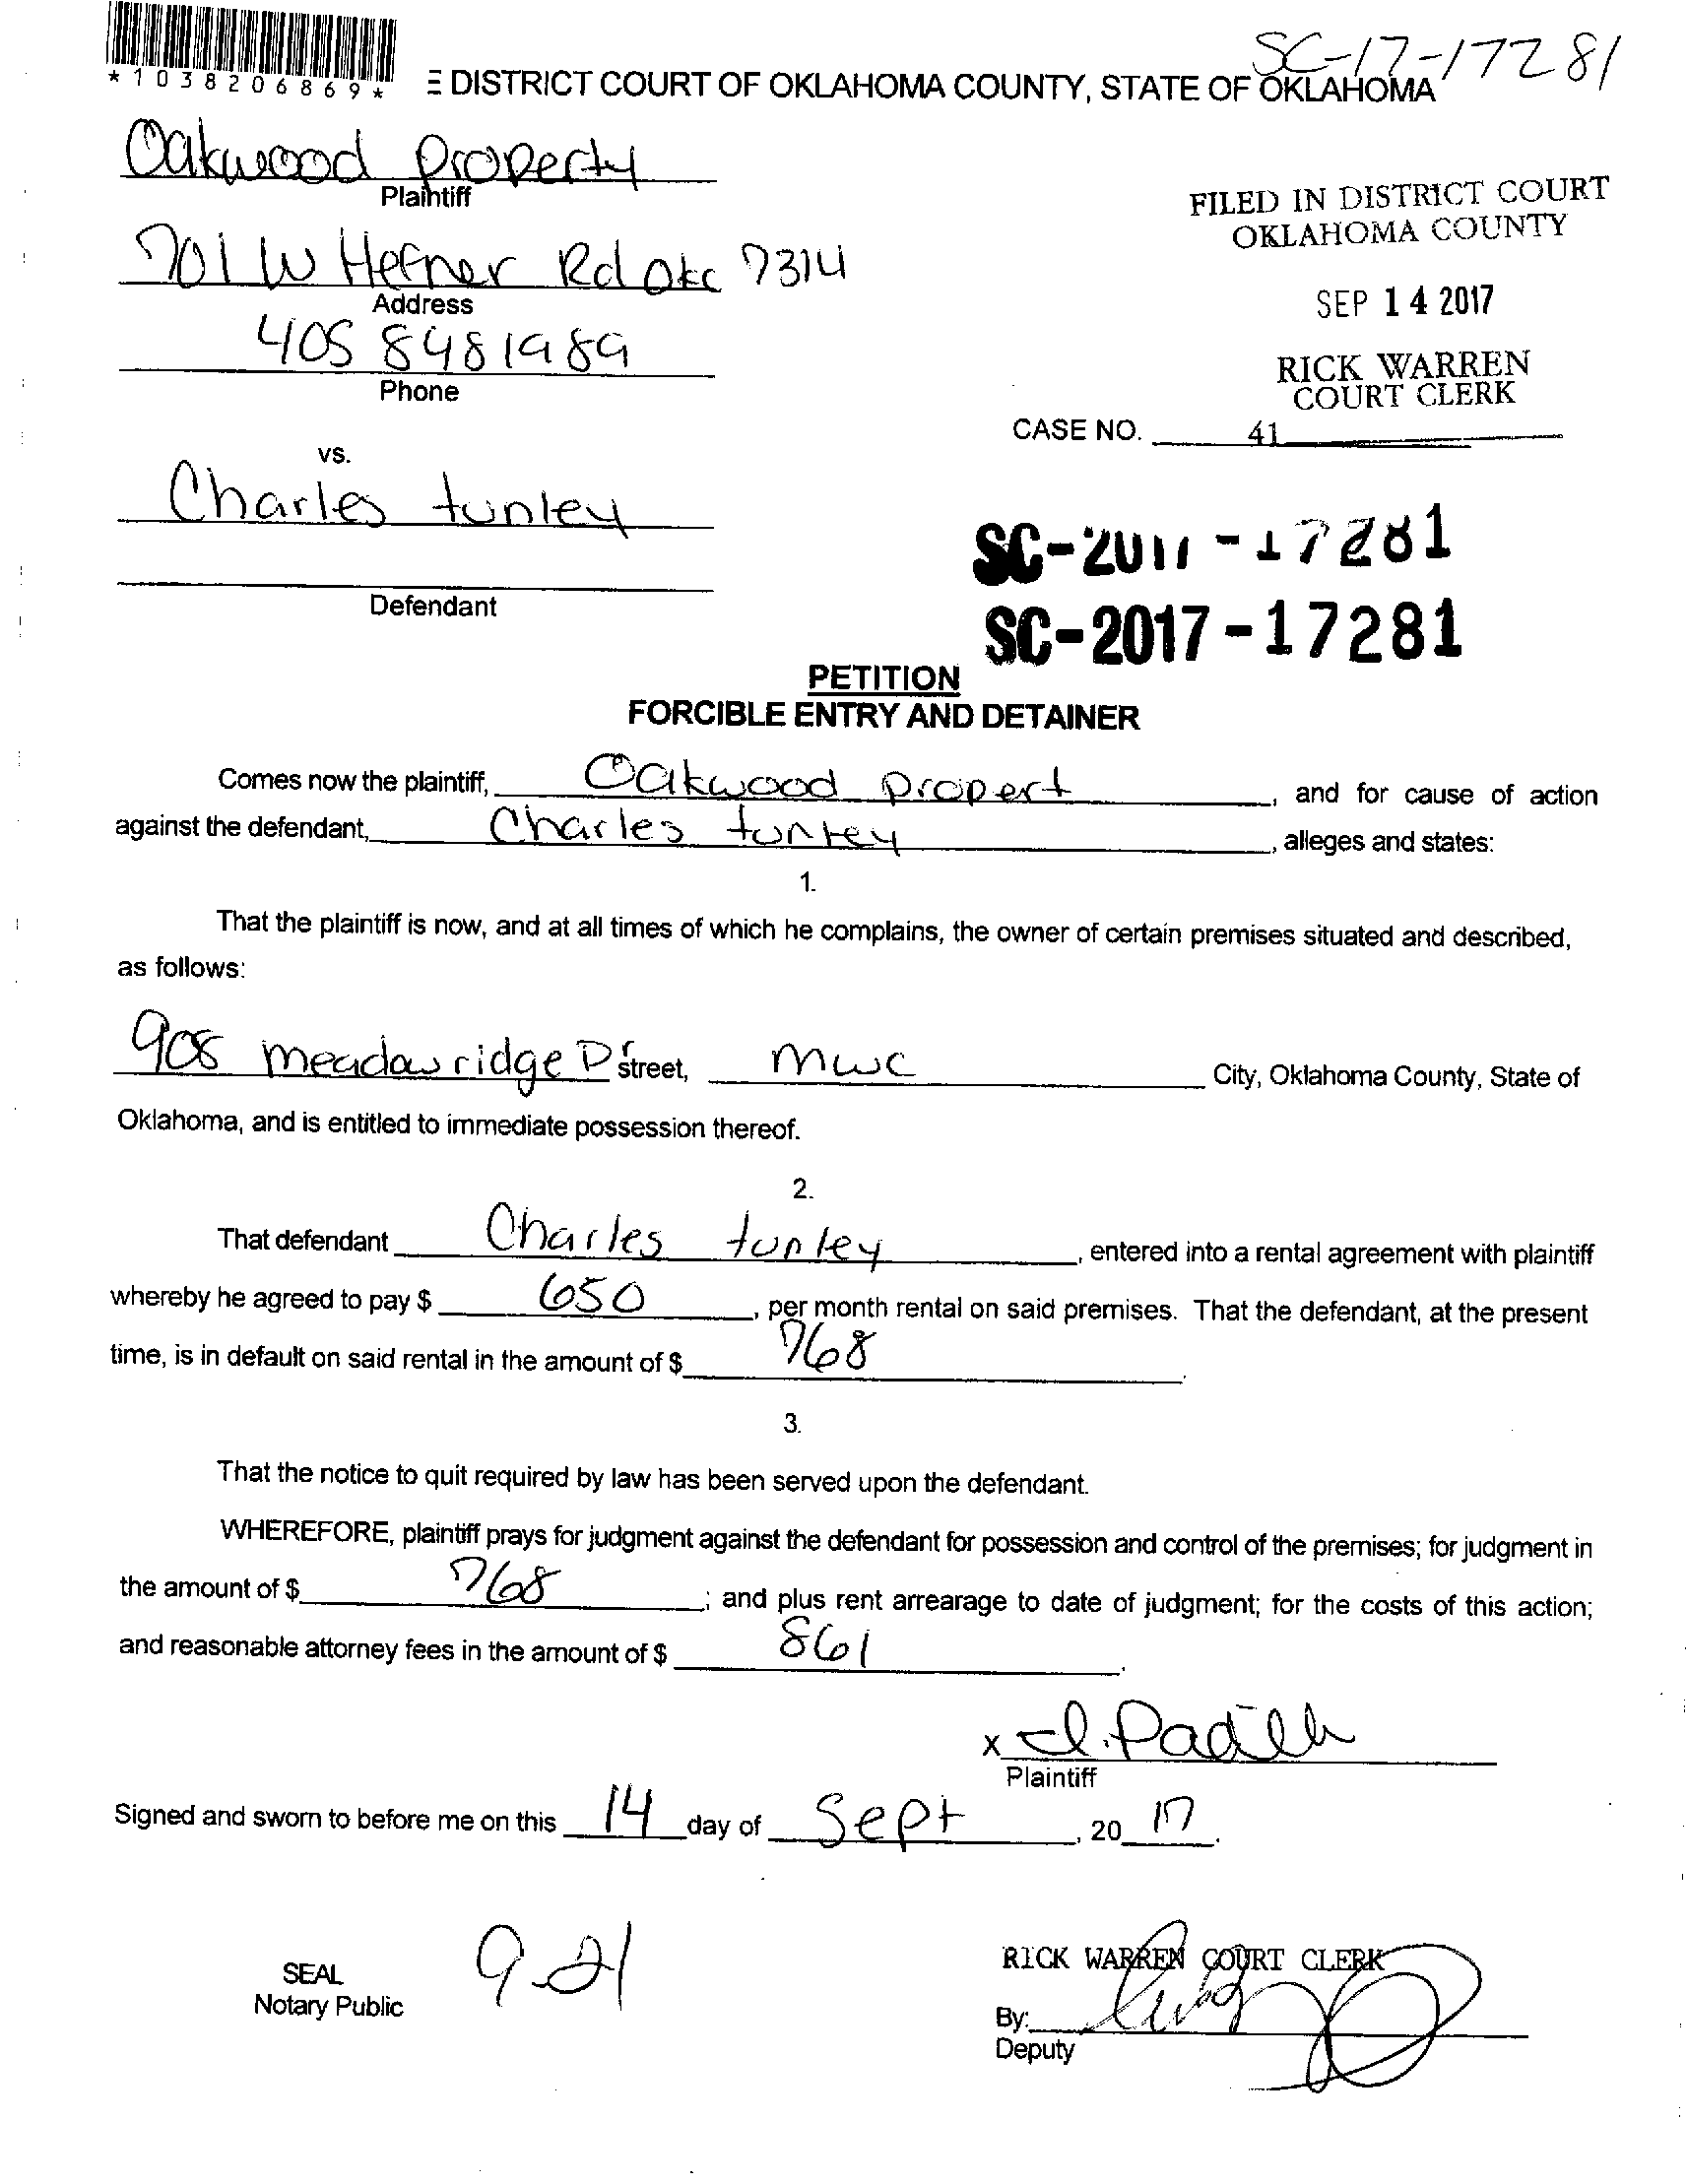 *1038206869*
SC-17-17281
E DISTRICT COURT OF OKLAHOMA COUNTY, STATE OF OKLAHOMA
Oakwood Property
Plaintiff
701 W Hefner Rd OKC 7314
Address
405 8481989
Phone
FILED IN DISTRICT COURT
OKLAHOMA COUNTY
SEP 14 2017
RICK WARREN
COURT CLERK
CASE NO. 41
vs.
Charles tunley
Defendant
SC-2017-17281
SC-2017-17281
PETITION
FORCIBLE ENTRY AND DETAINER
Comes now the plaintiff, Oakwood propert, and for cause of action
against the defendant, Charles tunley, alleges and states:
1.
That the plaintiff is now, and at all times of which he complains, the owner of certain premises situated and described,
as follows:
908 meadowridge Dr Street, mwc City, Oklahoma County, State of
Oklahoma, and is entitled to immediate possession thereof.
2.
That defendant Charles tunley, entered into a rental agreement with plaintiff
whereby he agreed to pay $ 650, per month rental on said premises. That the defendant, at the present
time, is in default on said rental in the amount of $ 768.
3.
That the notice to quit required by law has been served upon the defendant.
WHEREFORE, plaintiff prays for judgment against the defendant for possession and control of the premises; for judgment in
the amount of $ 768; and plus rent arrearage to date of judgment; for the costs of this action;
and reasonable attorney fees in the amount of $ 861.
x I. Padilla
Plaintiff
Signed and sworn to before me on this 14 day of Sept, 20 17.
SEAL
Notary Public
9-21
RICK WARREN COURT CLERK
By:
Deputy